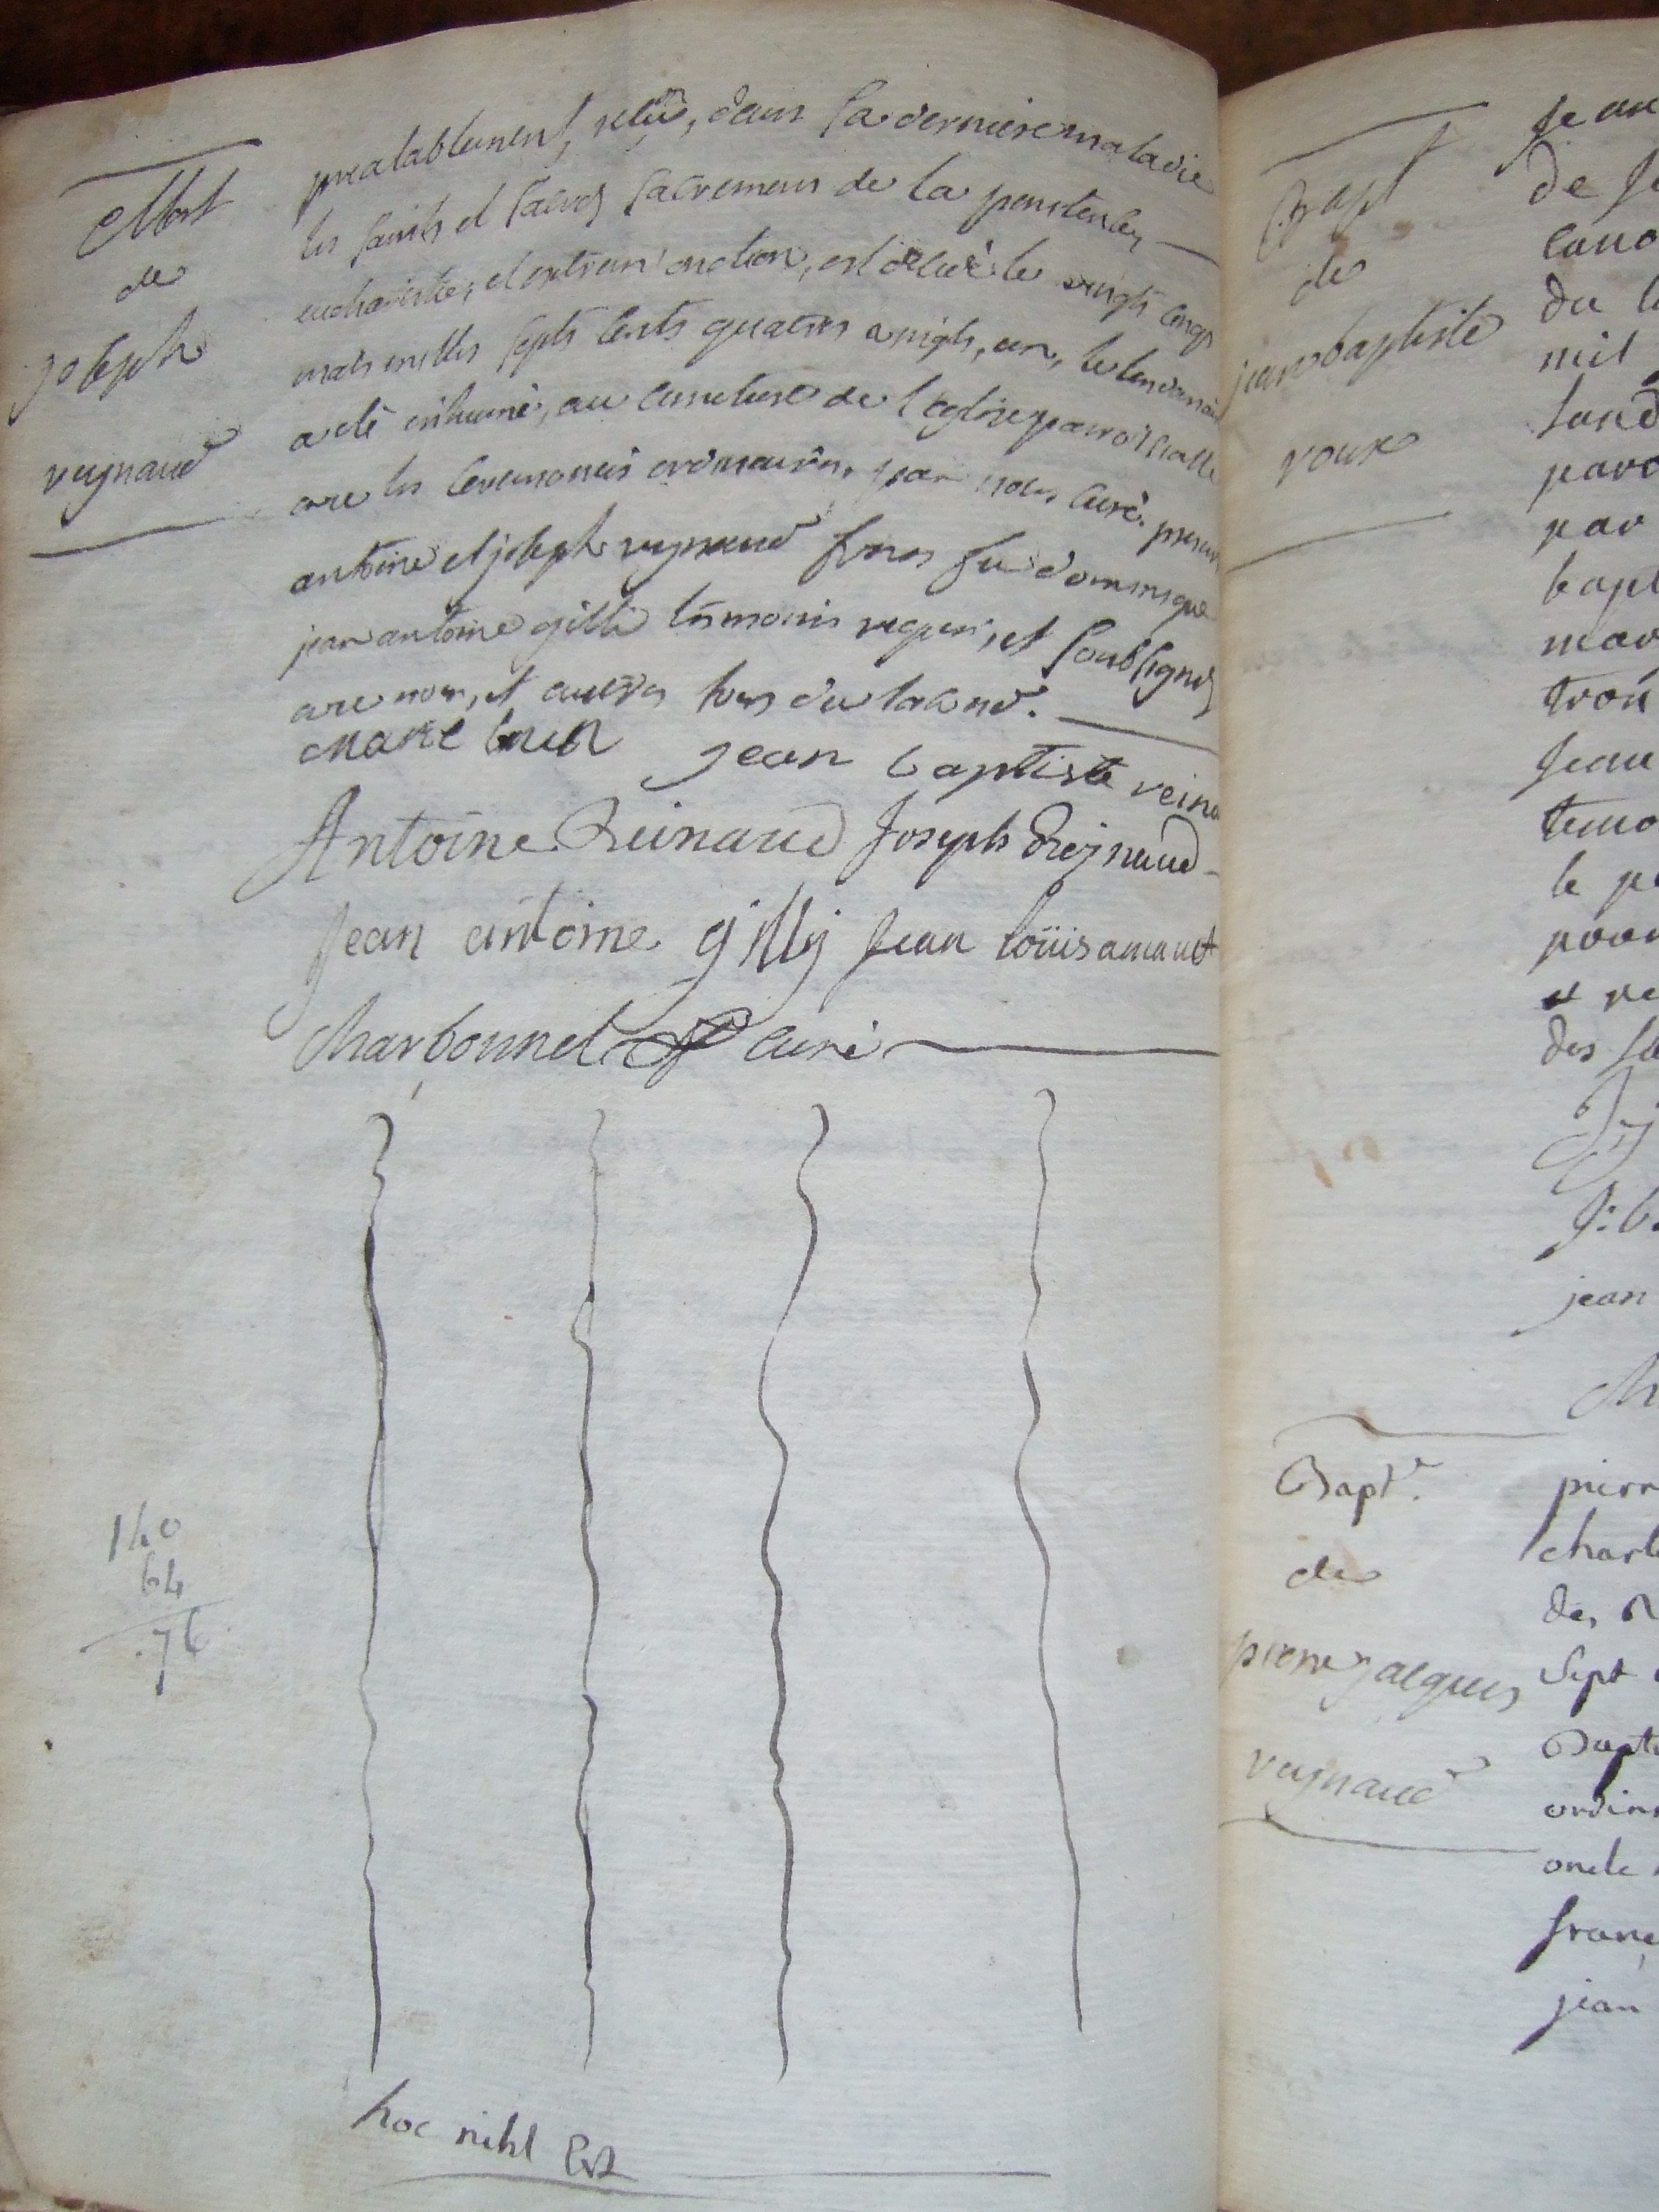 Mort
de
joseph
reynaud
prealablement, reçu, dans sa derniere maladie
les saints et sacrés sacremens de la penitence,
eucharistie, et extreme onction, est décédé le vingts cinq
mars milles septs cents quatres vingts, un, le lendemain
a eté inhumé, au cimetiere de l'eglise parroissialle
avec les ceremonies ordinaires, par nous curé. presents
antoine et joseph reynaud freres fu dominique
jean antoine gilli temoins requis, et soubsignés
avec nous, et autres
marc jean baptiste reina
Antoine Reinaud Joseph Reynaud
Jean antoine gilly Jean loüis amant
Charbonnel curé
140
64
76
hoc nihl Est
Bapt
de
jean baptiste
roux
Jean
de Je
du l
mil
paro
par
bapt
mar
Jean
temo
le pe
pour
et re
des
jean
Bapt.e
de
pierre jacques
reynaud
pierr
charl
des
Sept
Bapt
ordin
oncle
franç
jean